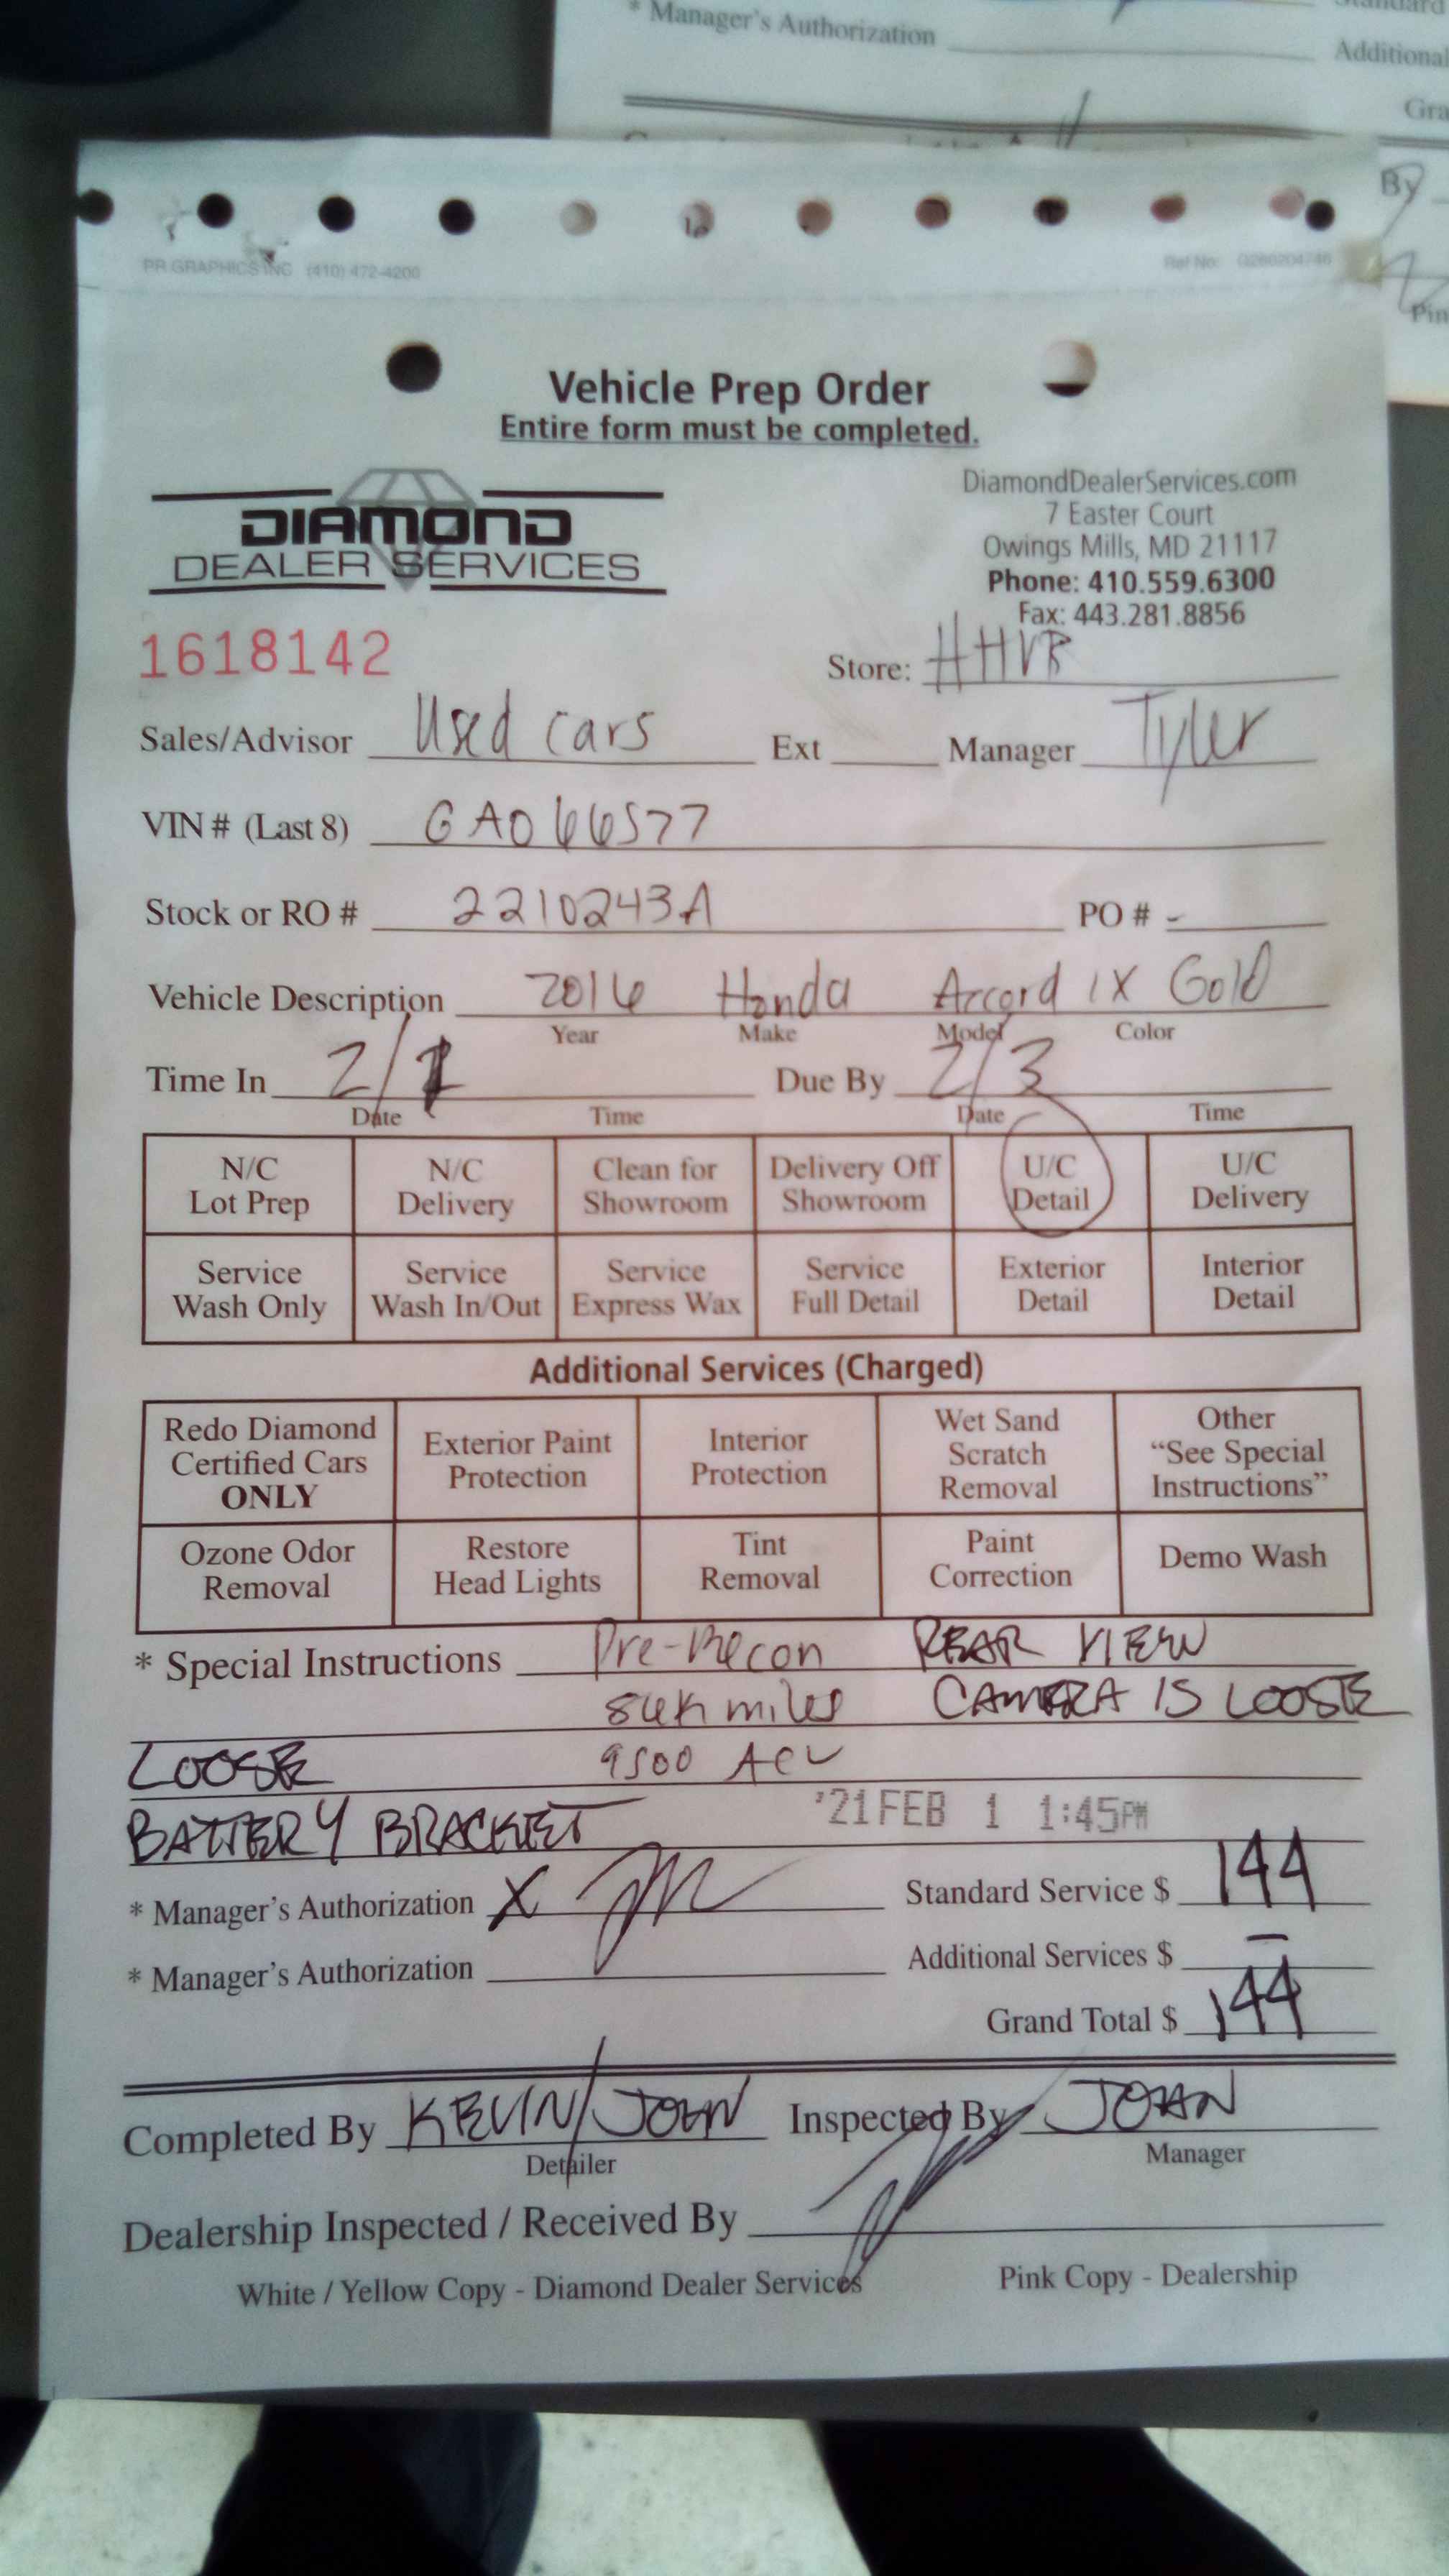 * Manager's Authorization
Standard
Additional
Gra
By
Pin
PR GRAPHICS INC (410) 472-4200
Ref No:
Vehicle Prep Order
Entire form must be completed.
DIAMOND
DEALER SERVICES
DiamondDealerServices.com
7 Easter Court
Owings Mills, MD 21117
Phone: 410.559.6300
Fax: 443.281.8856
1618142
Store: HHVR
Sales/Advisor Used cars Ext Manager Tyler
VIN # (Last 8) GA066577
Stock or RO # 2210243A PO # -
Vehicle Description 2016 Honda Accord LX Gold
Year Make Model Color
Time In 2/1 Due By 2/3
Date Time Date Time
N/C Lot Prep N/C Delivery Clean for Showroom Delivery Off Showroom U/C Detail U/C Delivery
Service Wash Only Service Wash In/Out Service Express Wax Service Full Detail Exterior Detail Interior Detail
Additional Services (Charged)
Redo Diamond Certified Cars ONLY Exterior Paint Protection Interior Protection Wet Sand Scratch Removal Other "See Special Instructions"
Ozone Odor Removal Restore Head Lights Tint Removal Paint Correction Demo Wash
* Special Instructions Pre-Recon REAR VIEW
84K miles CAMERA IS LOOSE
LOOSE 9500 ACV
BATTERY BRACKET '21 FEB 1 1:45PM
* Manager's Authorization X Standard Service $ 144
* Manager's Authorization Additional Services $ -
Grand Total $ 144
Completed By KEVIN/JOHN Inspected By JOHN
Detailer Manager
Dealership Inspected / Received By
White / Yellow Copy - Diamond Dealer Services Pink Copy - Dealership